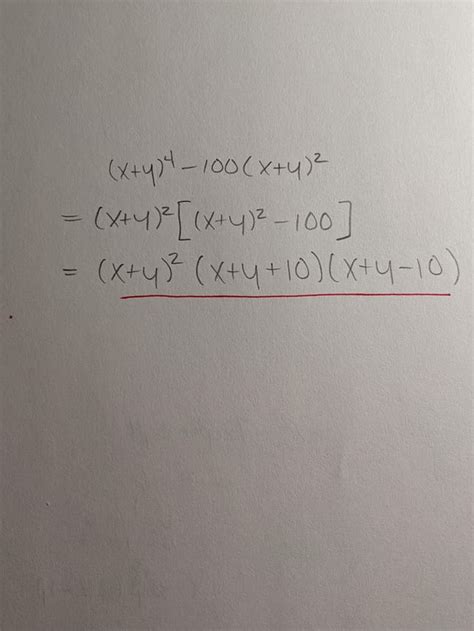 (x+y)⁴ - 100(x+y)²
= (x+y)² [(x+y)² - 100]
= (x+y)² (x+y+10)(x+y-10)